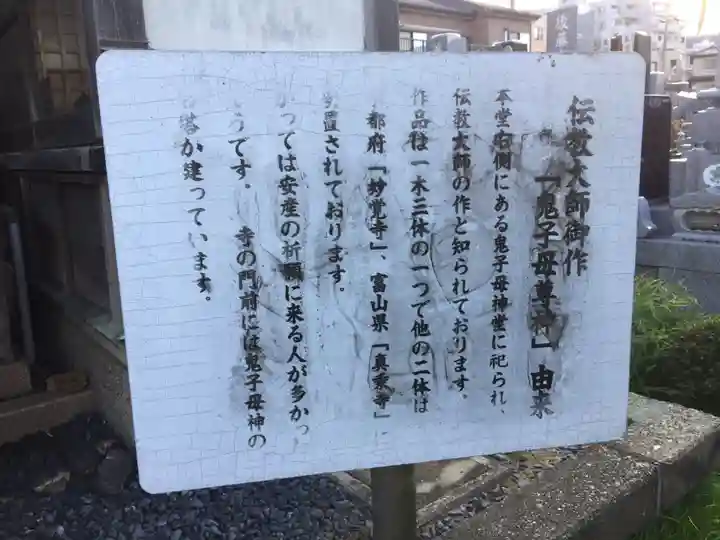 伝教大師御作
「鬼子母尊神」由来
本堂右側にある鬼子母神堂に祀られ、
伝教大師の作と知られております、
作品は一木三体の一つで他の二体は
都府「妙覚寺」、富山県「真乗寺」に
置されております。
っては安産の祈願に来る人が多かっ
うです。 寺の門前には鬼子母神の
塔が建っています。